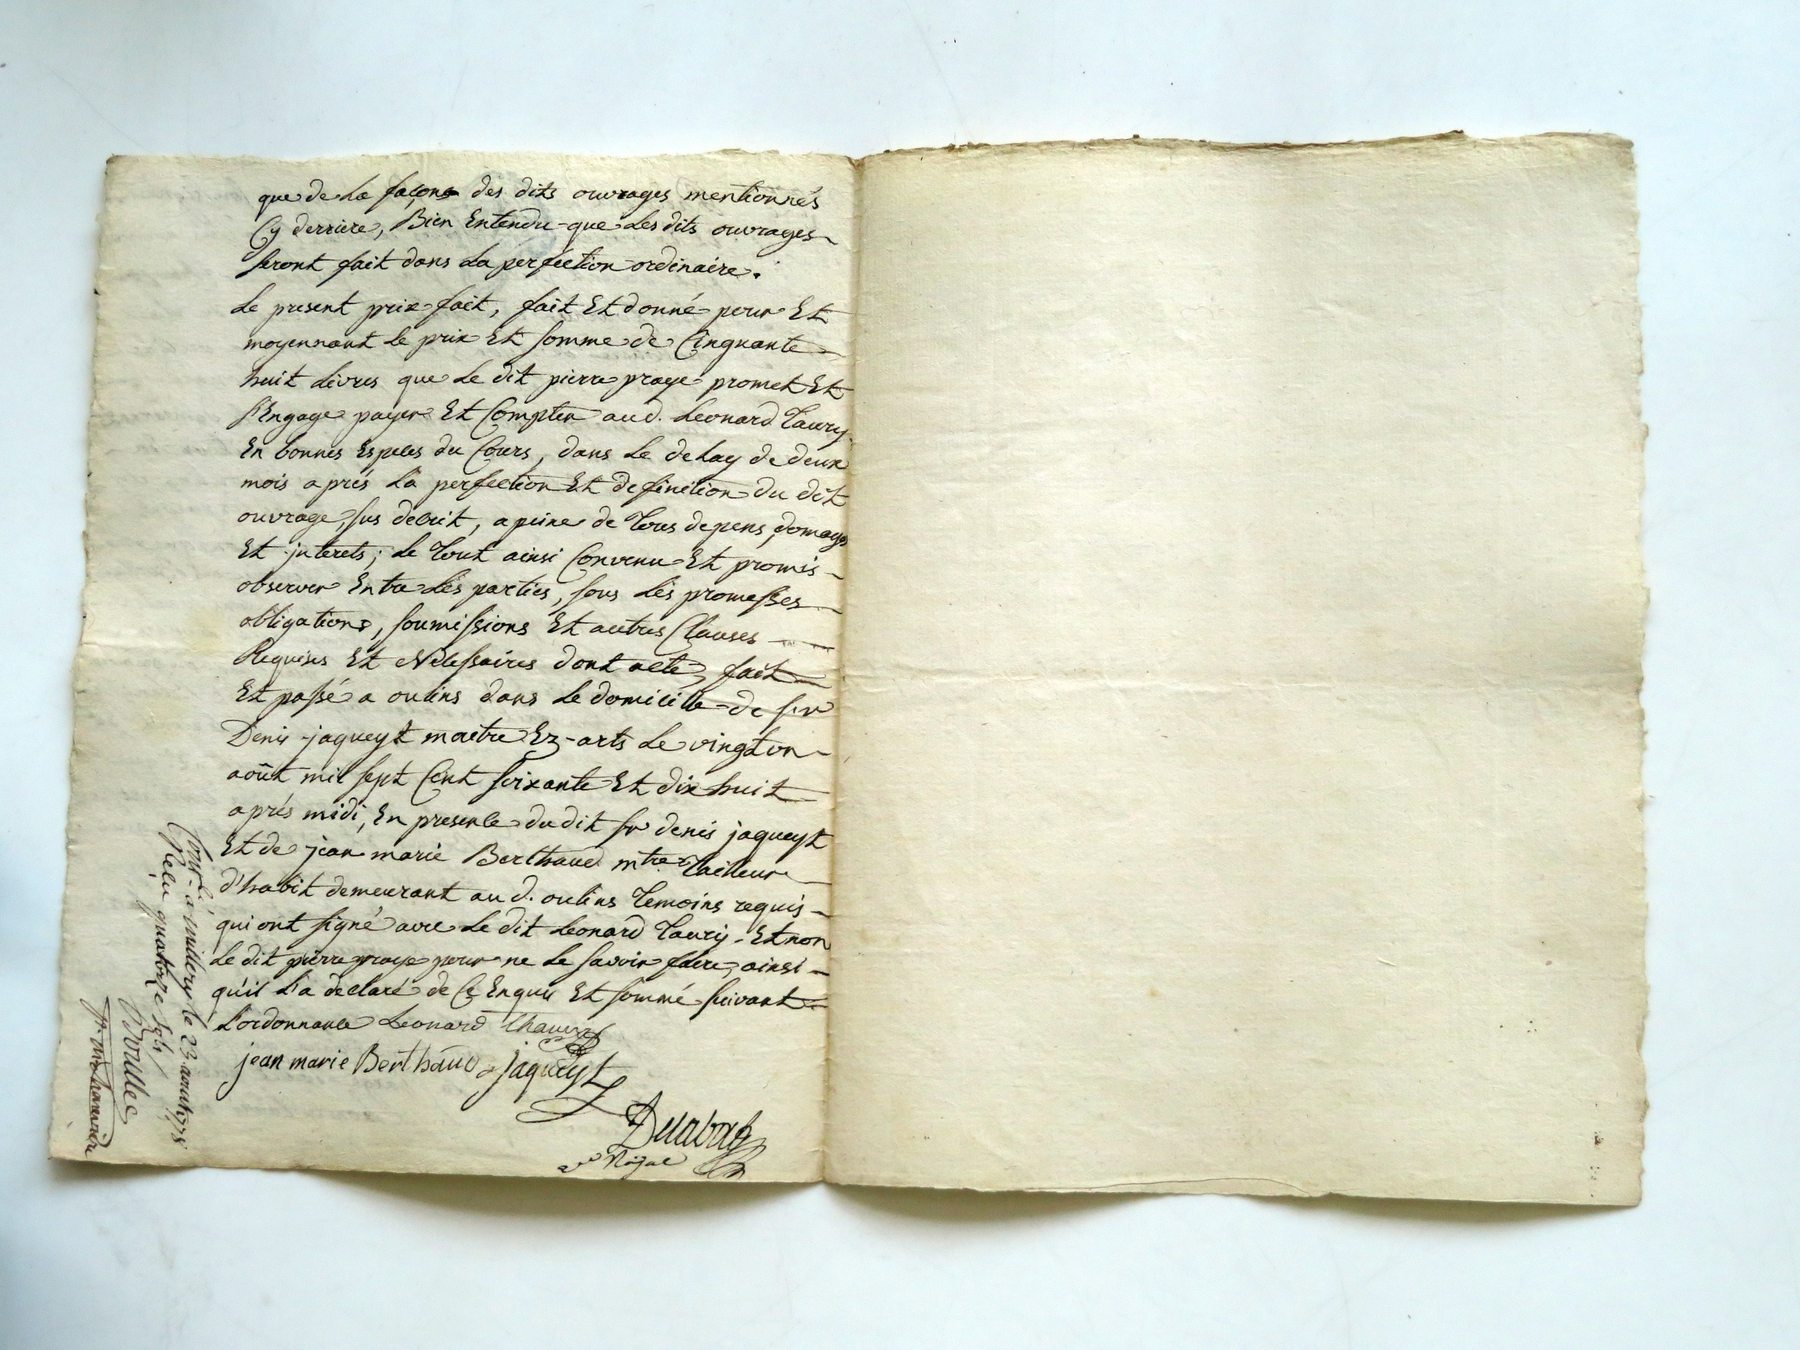 que de la façon des dits ouvrages mentionnés
Cy derriere, Bien Entendu que les dits ouvrages
seront fait dans la perfection ordinaire.
Le present prix fait, fait Et donné pour Et
moyennant le prix Et somme de Cinquante
huit livres que le dit pierre praye promet Et
s'Engage payer Et Compter aud. Leonard Taury
En bonnes Especes du Cours, dans le delay de deux
mois aprés la perfection Et definition du dit
ouvrage, sus decrit, a peine de tous depens, domages
Et interets; le tout ainsi Convenu Et promis
observer Entre les parties, sous les promesses
obligations, soumissions Et autres Clauses
Requises Et Necessaires dont acte, fait
Et passé a oulins dans le domicille de sr
Denis jaqueyt maitre Ez-arts le vingt un
août mil sept Cent soixante Et dix huit
aprés midi, En presence du dit sr denis jaqueyt
Et de jean marie Berthaud mtre Tailleur
d'habit demeurant au d. oulins temoins requis
qui ont signé avec le dit Leonard Taury Et non
le dit pierre praye pour ne le savoir faire, ainsi
qu'il l'a declaré de Ce Enquis Et sommé suivant
L'ordonnance Leonard Thaury
jean marie Berthaud jaqueyt
Notre Royal
Conlé. à millery le 23 aoust 1778
Reçu quatorze sols